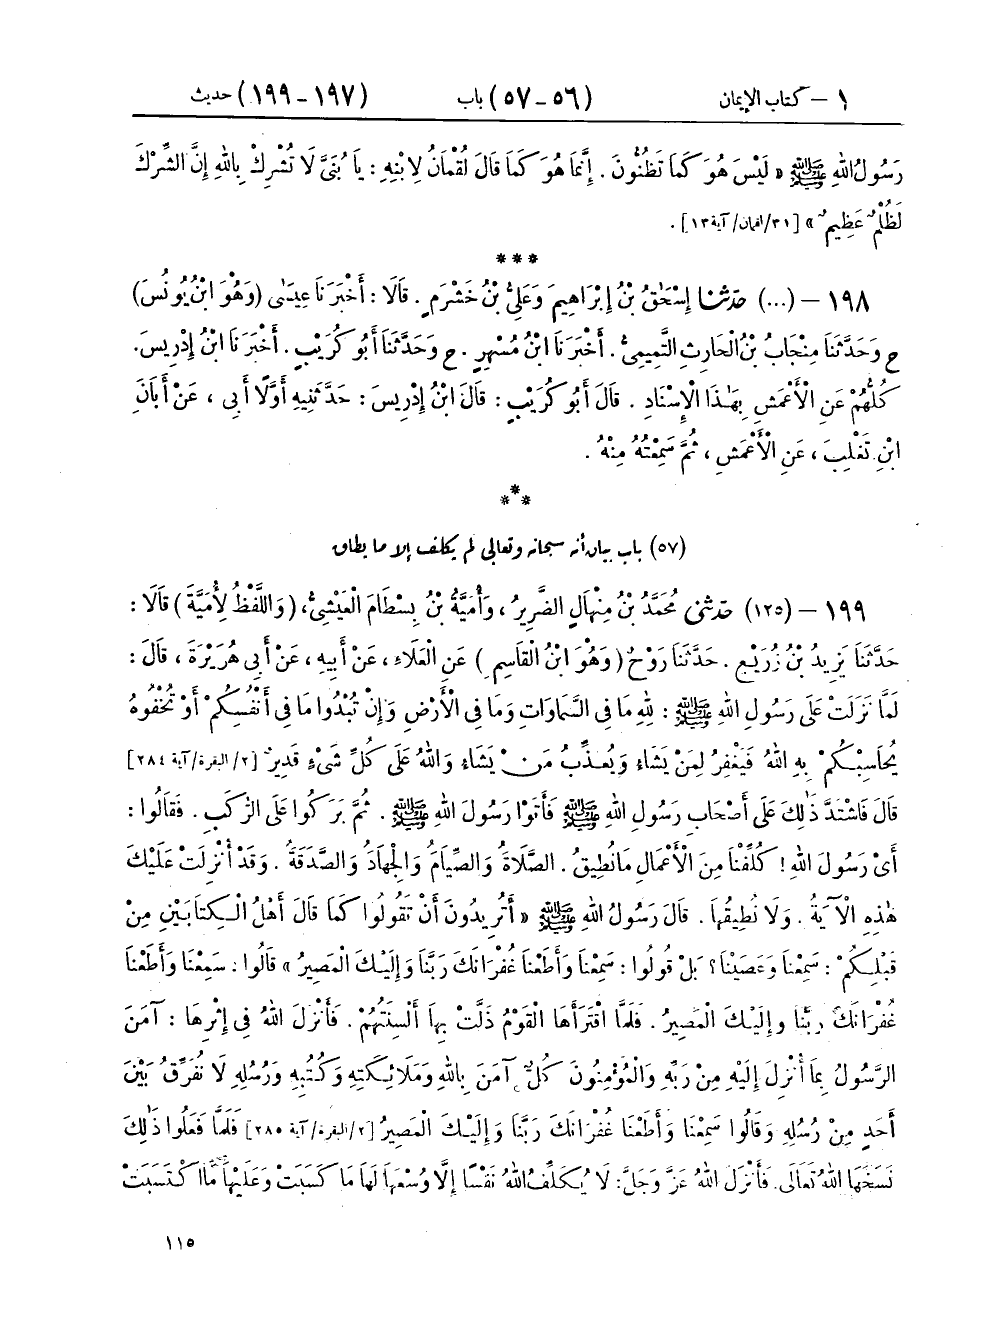 ١ – كتاب الإيمان (٥٦-٥٧) باب (١٩٧-١٩٩) حديث
رَسُولُ اللهِ ﷺ « لَيْسَ هُوَ كَمَا تَظُنُّونَ . إِنَّمَا هُوَ كَمَا قَالَ لُقْمَانُ لِابْنِهِ : يَا بُنَيَّ لَا تُشْرِكْ بِاللهِ إِنَّ الشِّرْكَ
لَظُلْمٌ عَظِيمٌ » [٣١/لقمان/ آية ١٣] .
***
١٩٨ – (...) حدثنا إِسْحَٰقُ بْنُ إِبْرَاهِيمَ وَعَلِيُّ بْنُ خَشْرَمٍ . قَالَا : أَخْبَرَنَا عِيسَىٰ (وَهُوَ ابْنُ يُونُسَ)
ح وَحَدَّثَنَا مِنْجَابُ بْنُ الْحَارِثِ التَّمِيمِيُّ . أَخْبَرَنَا ابْنُ مُسْهِرٍ . ح وَحَدَّثَنَا أَبُو كُرَيْبٍ . أَخْبَرَنَا ابْنُ إِدْرِيسَ .
كُلُّهُمْ عَنِ الْأَعْمَشِ بِهَٰذَا الْإِسْنَادِ . قَالَ أَبُو كُرَيْبٍ : قَالَ ابْنُ إِدْرِيسَ : حَدَّثَنِيهِ أَوَّلًا أَبِي ، عَنْ أَبَانَ
ابْنِ تَغْلِبَ ، عَنِ الْأَعْمَشِ ، ثُمَّ سَمِعْتُهُ مِنْهُ .
***
(٥٧) باب بيان أنه سبحانه وتعالى لم يكلف إلا ما يطاق
١٩٩ – (١٢٥) حدثني مُحَمَّدُ بْنُ مِنْهَالٍ الضَّرِيرُ ، وَأُمَيَّةُ بْنُ بِسْطَامَ الْعَيْشِيُّ ، (وَاللَّفْظُ لِأُمَيَّةَ) قَالَا :
حَدَّثَنَا يَزِيدُ بْنُ زُرَيْعٍ . حَدَّثَنَا رَوْحٌ (وَهُوَ ابْنُ الْقَاسِمِ) عَنِ الْعَلَاءِ ، عَنْ أَبِيهِ ، عَنْ أَبِي هُرَيْرَةَ ، قَالَ :
لَمَّا نَزَلَتْ عَلَى رَسُولِ اللهِ ﷺ : لِلهِ مَا فِي السَّمَاوَاتِ وَمَا فِي الْأَرْضِ وَإِنْ تُبْدُوا مَا فِي أَنْفُسِكُمْ أَوْ تُخْفُوهُ
يُحَاسِبْكُمْ بِهِ اللهُ فَيَغْفِرُ لِمَنْ يَشَاءُ وَيُعَذِّبُ مَنْ يَشَاءُ وَاللهُ عَلَى كُلِّ شَيْءٍ قَدِيرٌ [٢/ البقرة/ آية ٢٨٤]
قَالَ فَاشْتَدَّ ذَٰلِكَ عَلَى أَصْحَابِ رَسُولِ اللهِ ﷺ فَأَتَوْا رَسُولَ اللهِ ﷺ . ثُمَّ بَرَكُوا عَلَى الرُّكَبِ . فَقَالُوا :
أَيْ رَسُولَ اللهِ ! كُلِّفْنَا مِنَ الْأَعْمَالِ مَا نُطِيقُ . الصَّلَاةُ وَالصِّيَامُ وَالْجِهَادُ وَالصَّدَقَةُ . وَقَدْ أُنْزِلَتْ عَلَيْكَ
هٰذِهِ الْآيَةُ . وَلَا نُطِيقُهَا . قَالَ رَسُولُ اللهِ ﷺ « أَتُرِيدُونَ أَنْ تَقُولُوا كَمَا قَالَ أَهْلُ الْكِتَابَيْنِ مِنْ
قَبْلِكُمْ : سَمِعْنَا وَعَصَيْنَا ؟ بَلْ قُولُوا : سَمِعْنَا وَأَطَعْنَا غُفْرَانَكَ رَبَّنَا وَإِلَيْكَ الْمَصِيرُ » قَالُوا : سَمِعْنَا وَأَطَعْنَا
غُفْرَانَكَ رَبَّنَا وَإِلَيْكَ الْمَصِيرُ . فَلَمَّا اقْتَرَأَهَا الْقَوْمُ ذَلَّتْ بِهَا أَلْسِنَتُهُمْ . فَأَنْزَلَ اللهُ فِي إِثْرِهَا : آمَنَ
الرَّسُولُ بِمَا أُنْزِلَ إِلَيْهِ مِنْ رَبِّهِ وَالْمُؤْمِنُونَ كُلٌّ آمَنَ بِاللهِ وَمَلَائِكَتِهِ وَكُتُبِهِ وَرُسُلِهِ لَا نُفَرِّقُ بَيْنَ
أَحَدٍ مِنْ رُسُلِهِ وَقَالُوا سَمِعْنَا وَأَطَعْنَا غُفْرَانَكَ رَبَّنَا وَإِلَيْكَ الْمَصِيرُ [٢/البقرة/ آية ٢٨٥] فَلَمَّا فَعَلُوا ذَٰلِكَ
نَسَخَهَا اللهُ تَعَالَى . فَأَنْزَلَ اللهُ عَزَّ وَجَلَّ : لَا يُكَلِّفُ اللهُ نَفْسًا إِلَّا وُسْعَهَا لَهَا مَا كَسَبَتْ وَعَلَيْهَا مَا اكْتَسَبَتْ
١١٥